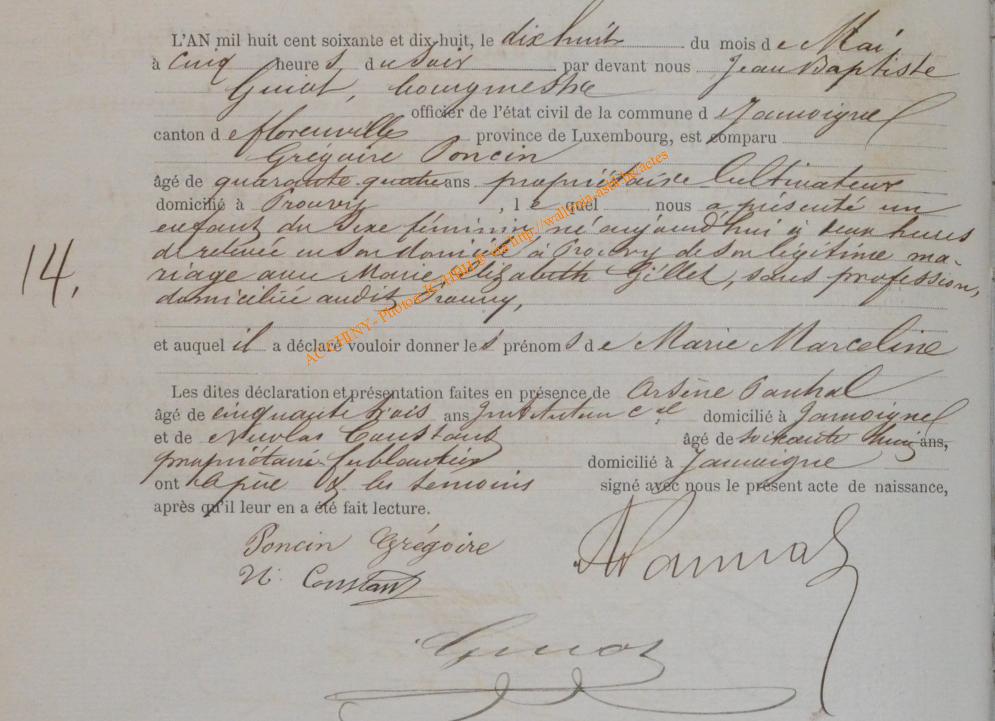 L'AN mil huit cent soixante et dix-huit, le dix huit du mois d e Mai,
à cinq heure s, du soir par devant nous Jean Baptiste
Guiot, bourgmestre
officier de l'état civil de la commune d e Jamoigne
canton d e florenville province de Luxembourg, est comparu
Grégoire Poncin
âgé de quarante-quatre ans propriétaire Cultivateur
domicilié à Prouvy, le quel nous a présenté un
enfant du sexe féminin né aujourd'hui à deux heures
de relevée en son domicile à Prouvy de son légitime ma-
riage avec Marie Elizabeth Gillet, sans profession,
domiciliée audit Prouvy,
14.
et auquel il a déclaré vouloir donner le s prénom s d e Marie Marceline
Les dites déclaration et présentation faites en présence de Arsène
âgé de cinquante trois ans Instituteur cal domicilié à Jamoigne
et de Nicolas Constant âgé de soixante ans,
propriétaire ferblantier domicilié à Jamoigne
ont le père & les temoins signé avec nous le présent acte de naissance,
après qu'il leur en a été fait lecture.
Poncin Grégoire
N. Constant
Guiot
ACGHINY - Photos